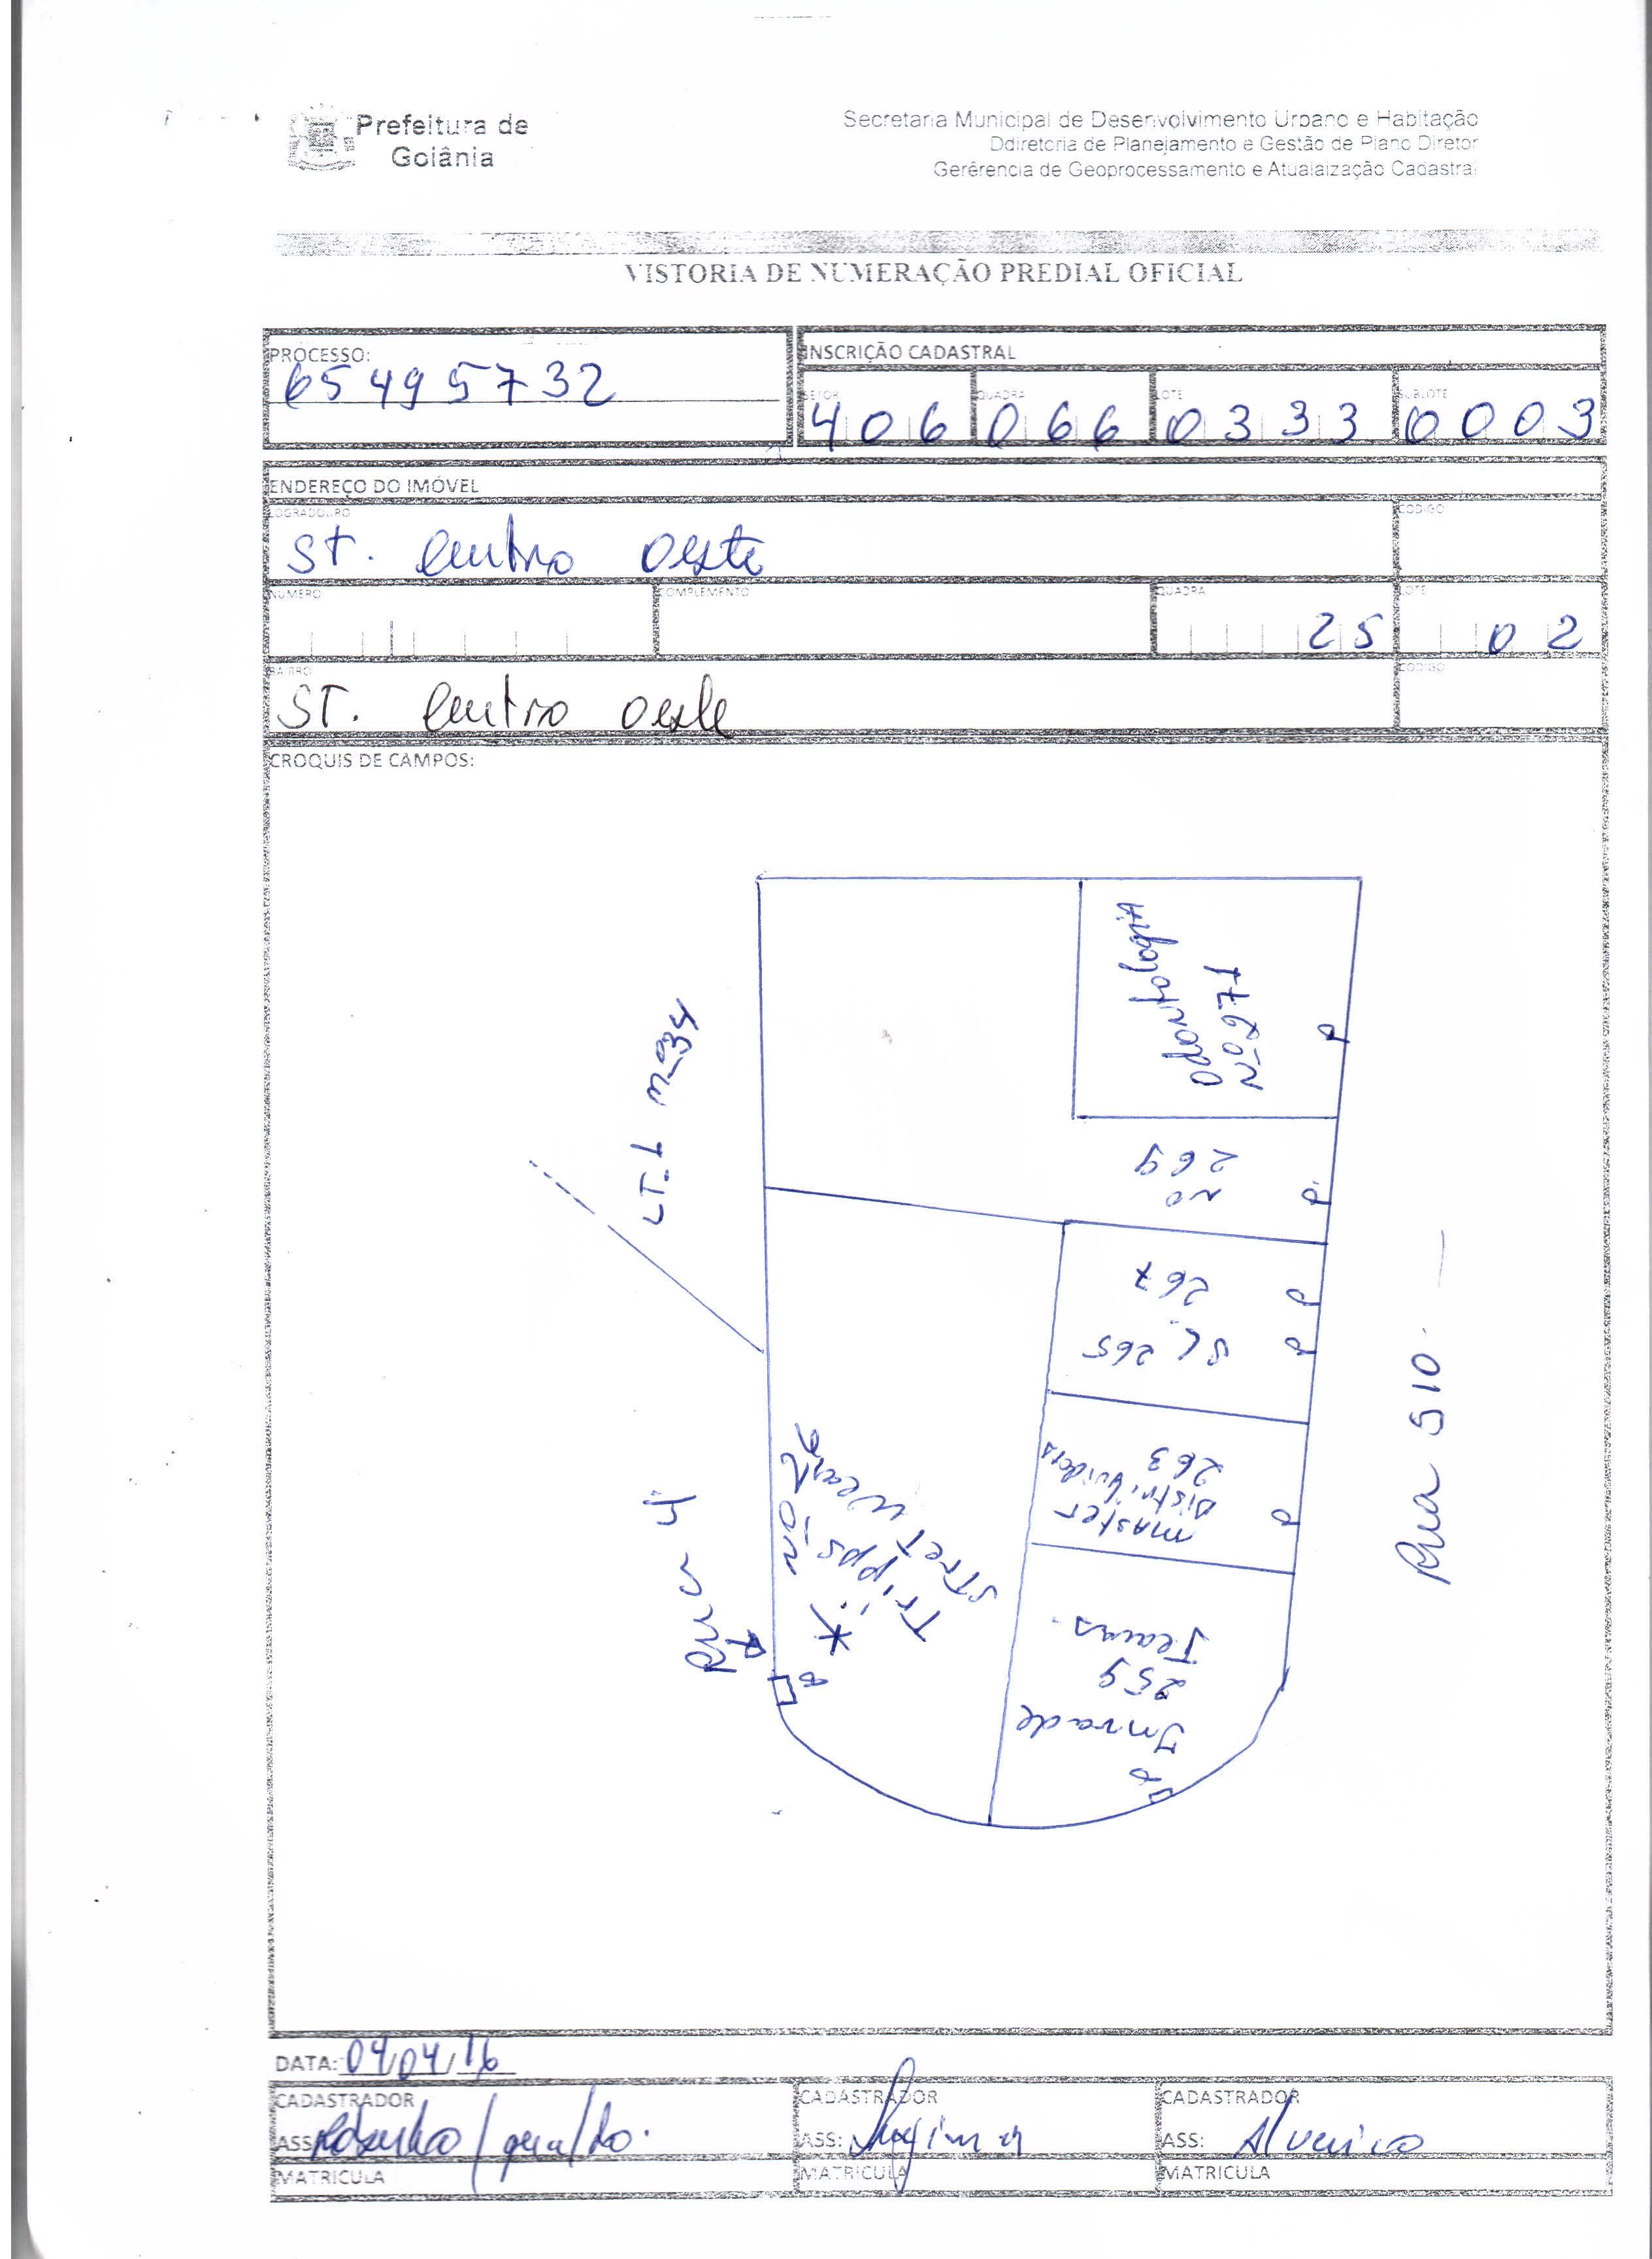 Prefeitura de
Goiânia
Secretaria Municipal de Desenvolvimento Urbano e Habitação
Ddiretoria de Planejamento e Gestão de Plano Diretor
Gerêrencia de Geoprocessamento e Atualaização Cadastral
VISTORIA DE NUMERAÇÃO PREDIAL OFICIAL
PROCESSO:
65495732
INSCRIÇÃO CADASTRAL
SETOR QUADRA LOTE SUBLOTE
406 066 0333 0003
ENDEREÇO DO IMÓVEL
LOGRADOURO CODIGO
ST. Centro oeste
NUMERO COMPLEMENTO QUADRA LOTE
25 02
BAIRRO CODIGO
ST. Centro oeste
CROQUIS DE CAMPOS:
Odontologia
Nº 271
LT. 1 nº 34
Nº
269
267
SL. 265
Master
Distribuidora
263
Rua 4
Nº
Tripps
Stret Wear
Rua 510
Invade
259
Jeans.
DATA: 04/04/16
CADASTRADOR CADASTRADOR CADASTRADOR
ASS: /geraldo. ASS: ASS:
MATRICULA MATRICULA MATRICULA